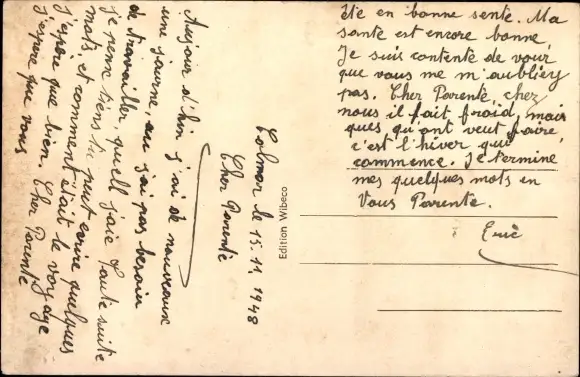 Colmar le 15.11.1948
Cher Parente
Aujour d'hui j'ai de nouveaux
une journé, au j'ai pas besoin
de travailler, quell joie toute suite
je pense tiens tu peut ecrire quelques
mots, et comment était le voyage
j'espère que bien. Cher Parente
j'espere que vous
été en bonne senté. Ma
santé est encore bonne,
Je suis contente de vour
que vous me m'aubliey
pas. Cher Parente, chez
nous il fait froid, mais
ques qu'ont veut faire,
c'est l'hiver qui
commence. Je termine
mes quelques mots en
Vous Parente.
Edition Wibeco